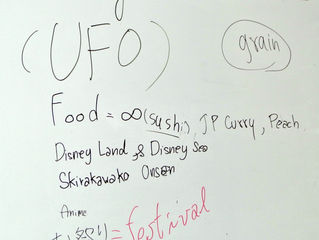 (UFO)
grain
Food = ∞ (sushi), JP Curry, Peach
Disney Land & Disney Sea
Skirakawako Onsen
Anime
お祭り = festival